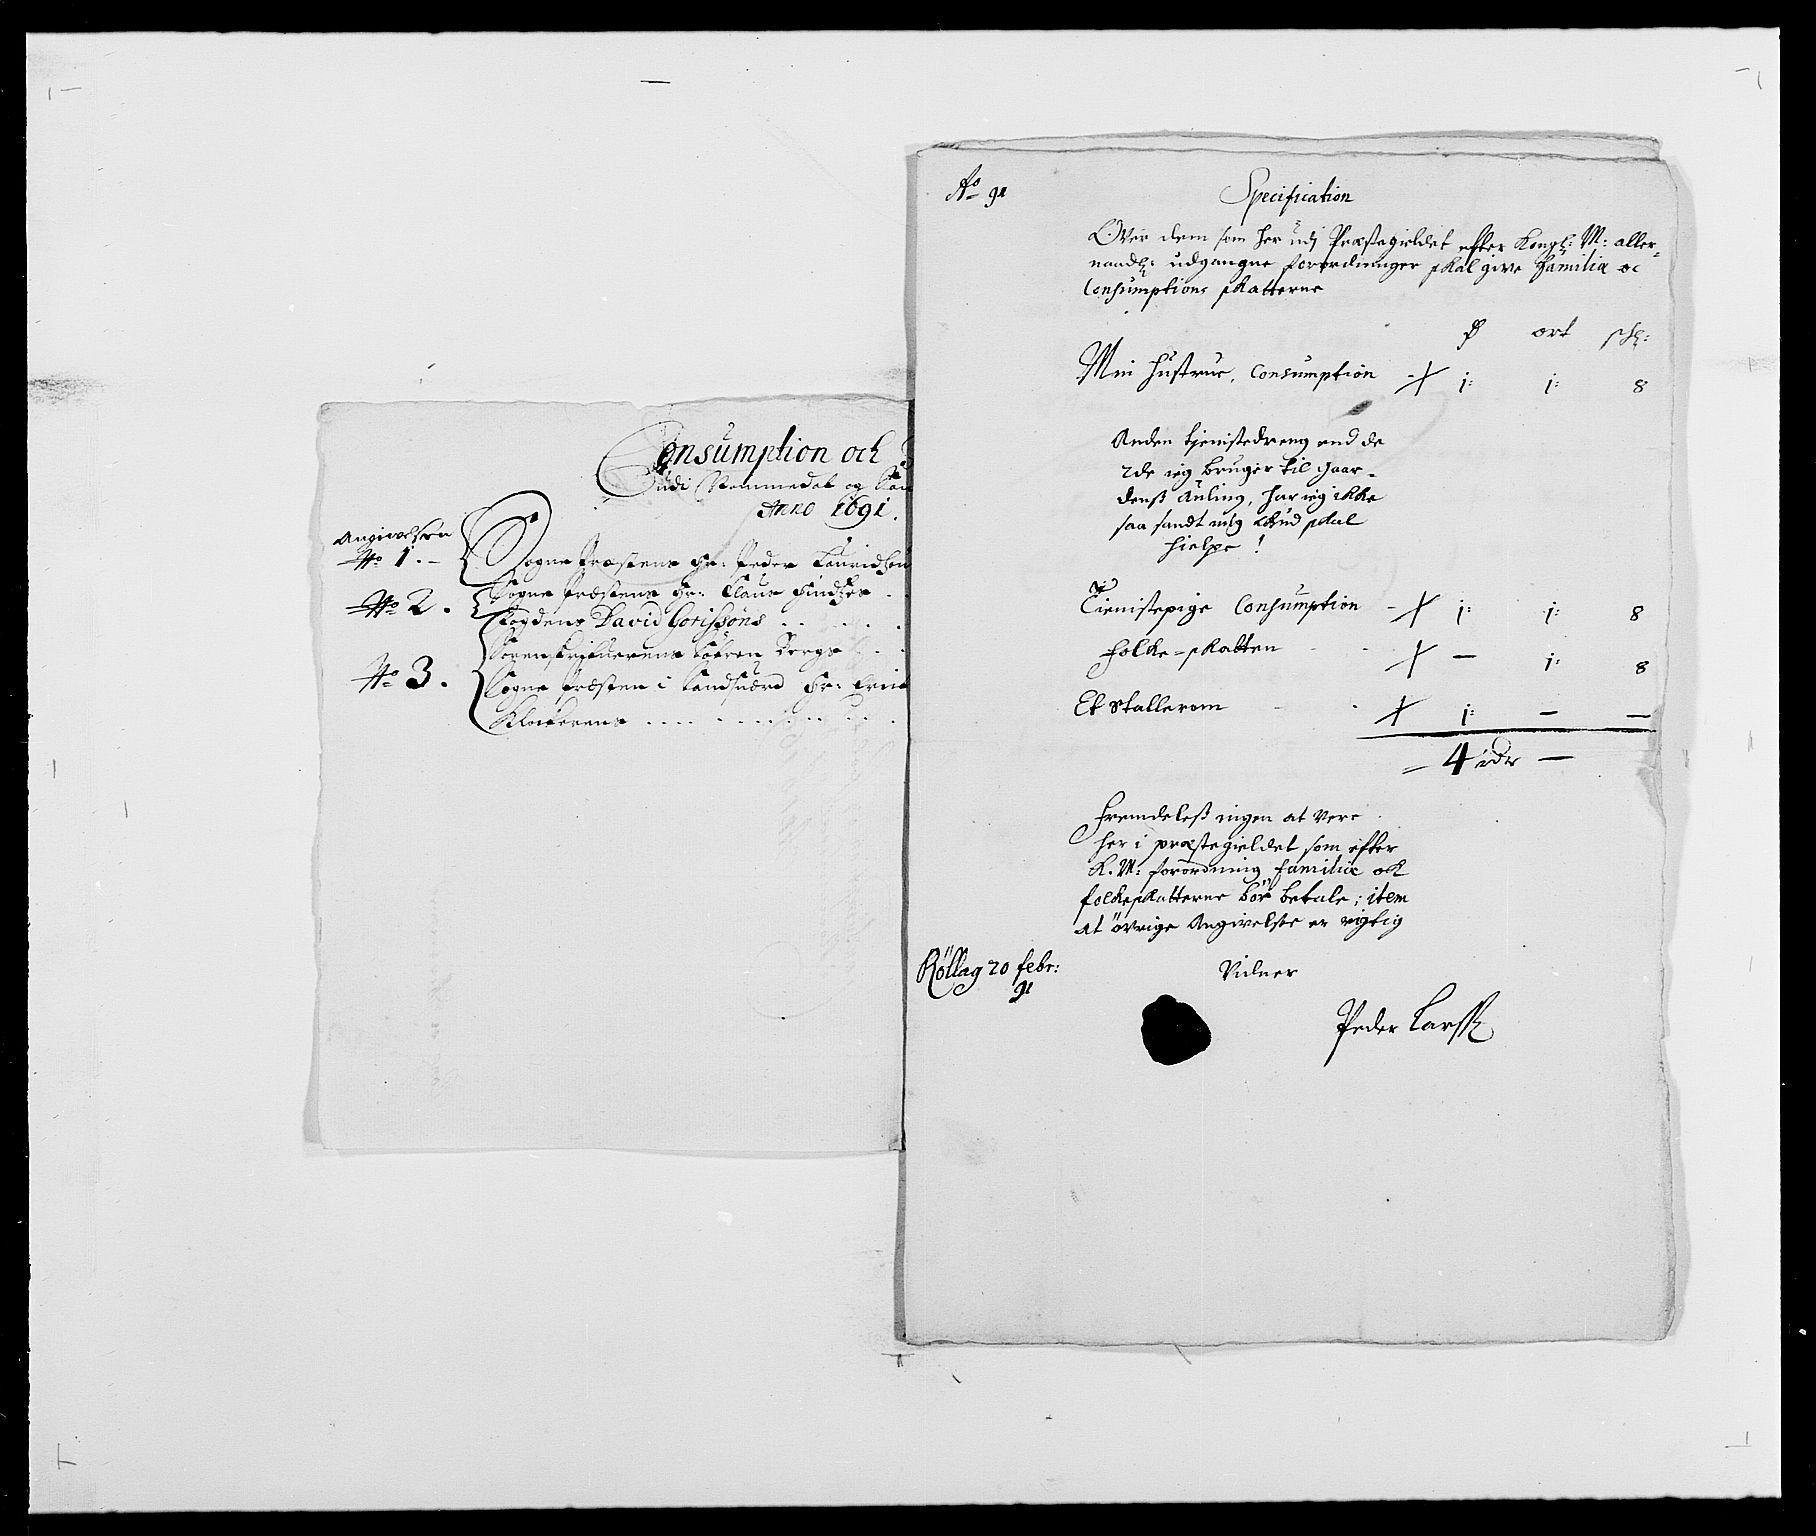 Consumption och
udi Nummedal og San
Anno 1691.
Angivelsen
No 1. Sogne Præstens Hr: Peder Lauridsøn
No 2. Sogne Præstens Hr: Claus
Fogdens David Gorissøns
Sorenskriferens Søfren
No 3. Sogne Præsten i Sandsverd Hr: Eric
Klockerens
Ao 91
Specification
Over dem som her udj Præstegieldet efter Kongl: M: aller-
naadl: udgangne forordninger skal give Familiæ oc
Consumptions skatterne
ort sch:
Min Hustrue, Consumption 1: 1: 8
Anden tjenistedreng end de
2de ieg bruger til gaar-
denß Auling, har ieg ikke
saa sandt mig Gud skal
hielpe!
Tienistepige Consumption 1: 1: 8
folke-skatten — 1: 8
Et Stallerom 1: — —
4 rdr —
Fremdeleß ingen at vere
her i præstegieldet som efter
K. M: forordning familiæ ock
folkeskatterne bör betale; item
at övrige Angivelse er rigtig
Röllag 20 febr:
91
Vidner
Peder Larss